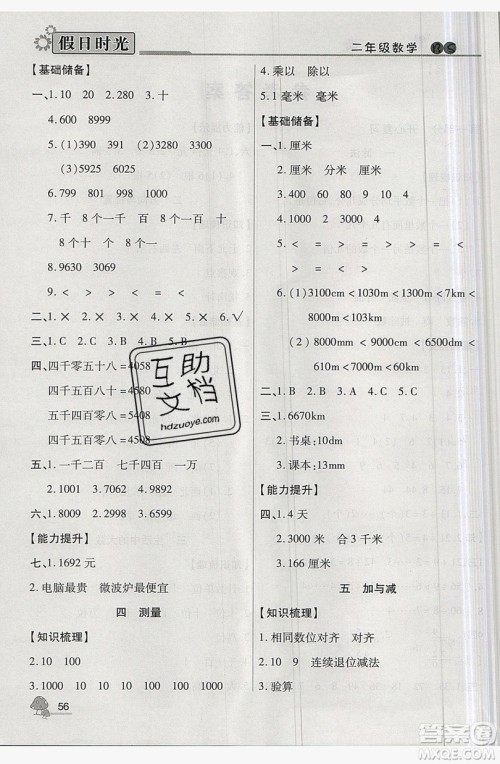 假日时光
二年级数学
【基础储备】
一、1.10 20 2.100 3.十
4.600 899
5.(1)390 391 (2)325
6.799 801 1000 998
7.千 8个一千 百 8个一百
十 8个十 个 8个一
8.9630 3069
9.< < = < > <
二、1.× 2.× 3.× 4.× 5.× 6.✓
三、1.C 2.C 3.B 4.B 5.C
四、四千零五十八=4058
四千五百八十=4580
五千四百零八=5408
四千五百零八=4508
五、1.一千二百 七千四百 一万
2.1001 3.7098 4.9990
六、1.8099 2.2998 3.8598
【能力提升】
七、1.1692元
2.电脑最贵 微波炉最便宜
四 测量
【知识梳理】
2.10 100
3.1000 10 10 10 100 1000
4.乘以 除以
5.1毫米 毫米 毫米
【基础储备】
一、1.厘米
2.厘米 分米 毫米 米
3.400 80 80 9 10 4
4.1000 1000
5.< = < < < = > >
6.(1)3100cm<1030m<1200m<7km
<8000m
(2)1000cm<100m<2000m<
610m<7000m<60km
二、1.B 2.B 3.A 4.C 5.C
三、1.6670km
2.书桌:10dm
3.课本:17dm
【能力提升】
四、1.4天
2.3000米 合3千米
3.166厘米
五 加与减
【知识梳理】
1.相同数位对齐 对齐
2.10 9 连续退位减法
3.验算
56
互助文档
hdzuoye.com
答案圈
MXQE.COM